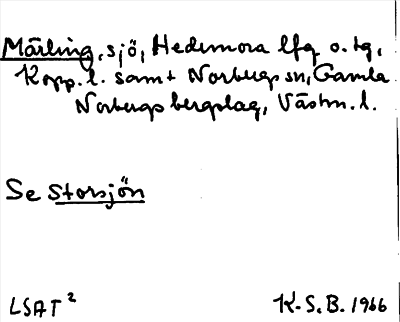 Märling, sjö, Hedemora lfg o. tg,
Kopp. l. samt Norbergs sn, Gamla
Norbergs bergslag, Västm. l.
Se Storsjön
LSAT² K-S. B. 1966